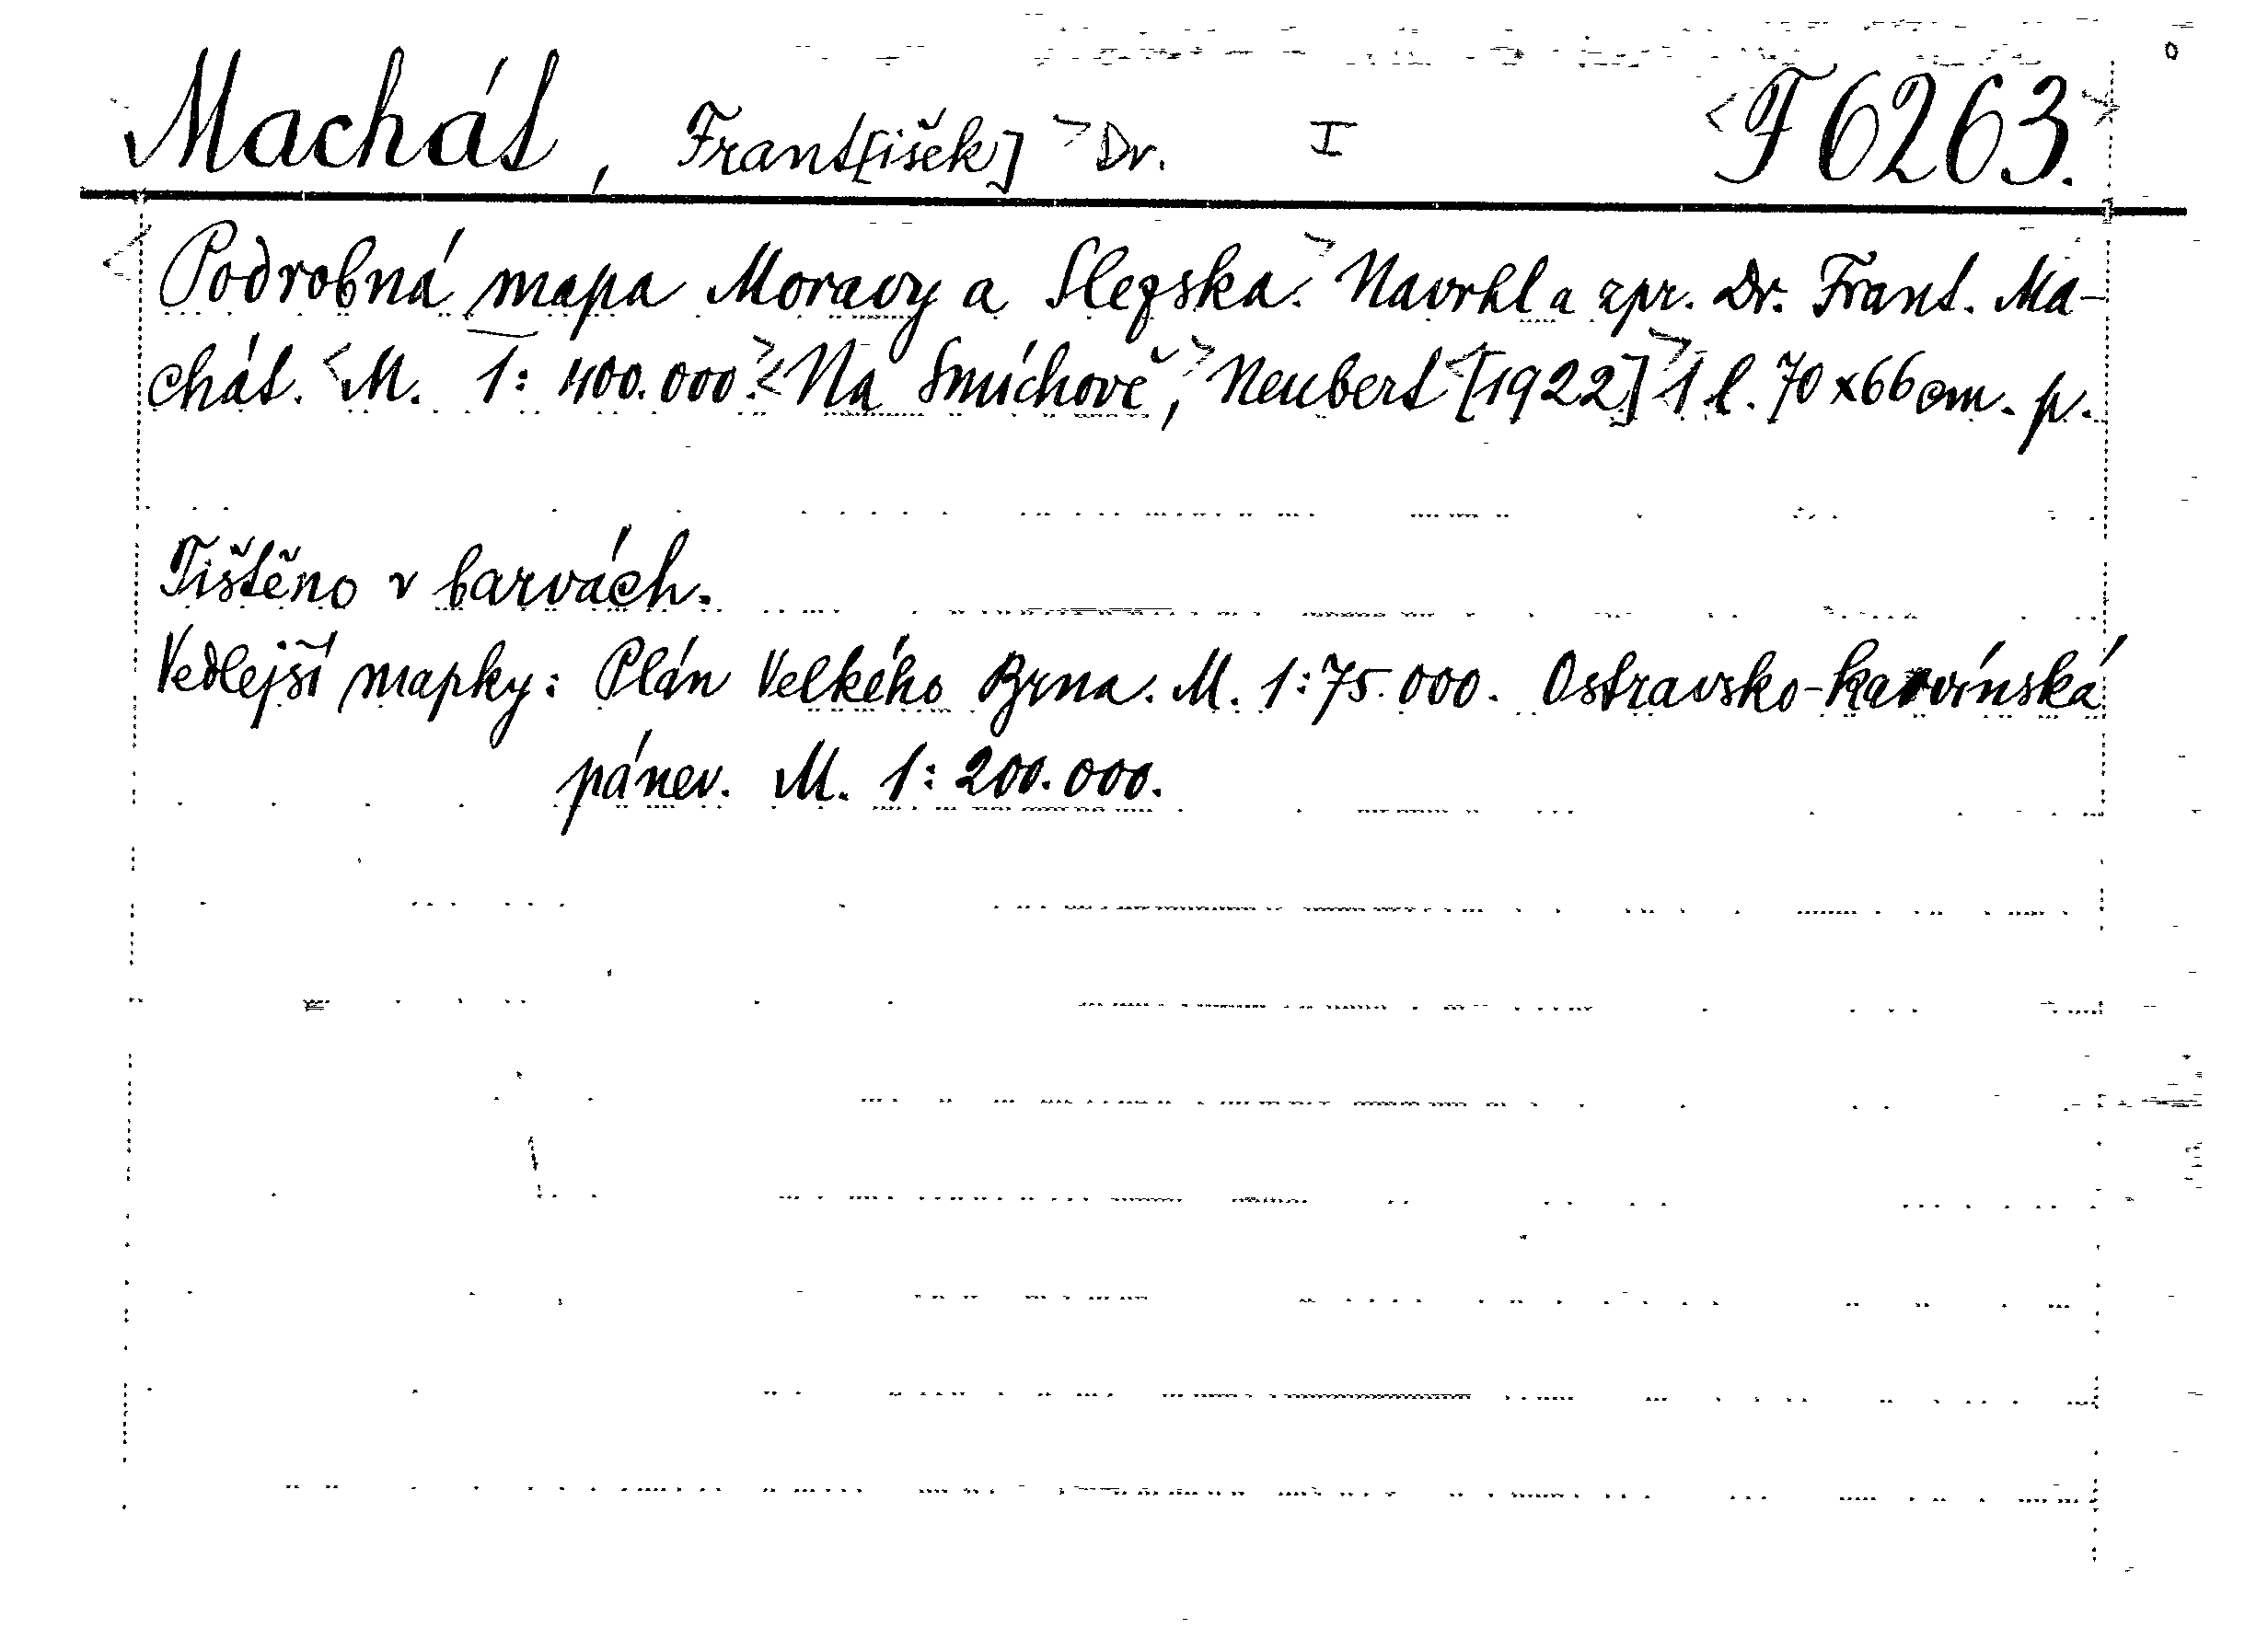 Machát, Frant[išek] Dr. I F 6263.
Podrobná mapa Moravy a Slezska. Navrhl a zpr. Dr. Frant. Ma-
chát. M. 1:400.000. Na Smíchově, Neubert [1922] 1 l. 70x66 cm. p.
Tištěno v barvách.
Vedlejší mapky: Plán Velkého Brna. M. 1:75.000. Ostravsko-karvínská
pánev. M. 1:200.000.